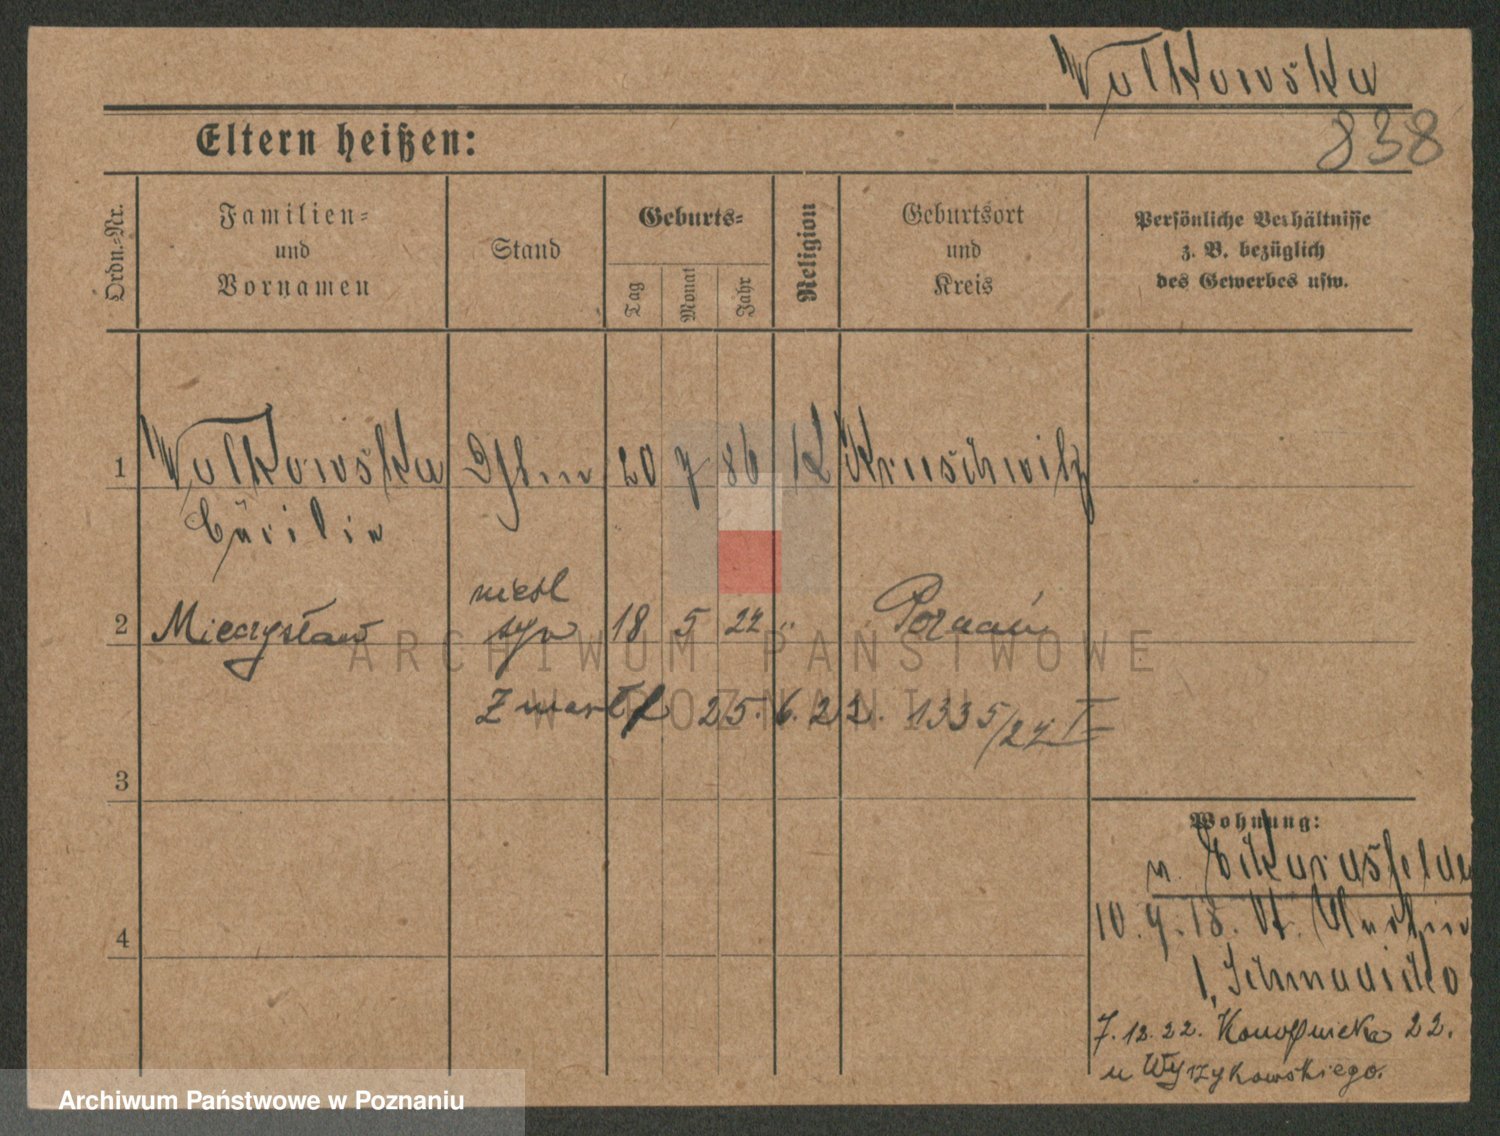 Wolkowska
838
Eltern heißen:
Ordn.-Nr.
Familien-
und
Vornamen
Stand
Geburts-
Tag
Monat
Jahr
Religion
Geburtsort
und
Kreis
Persönliche Verhältnisse
z. B. bezüglich
des Gewerbes usw.
1 Wolkowska 20 7 86 K Kruschwitz
Cäcilie
niesl
2 Mieczysław syn 18 5 22 " Poznań
Zmarł 25. 6. 22. 1335/22 I
3
Wohnung:
10. 9. 18. St. Martin
4
7. 12. 22. 22.
u Wyrzykowskiego.
ARCHIWUM PAŃSTWOWE
W POZNANIU
Archiwum Państwowe w Poznaniu